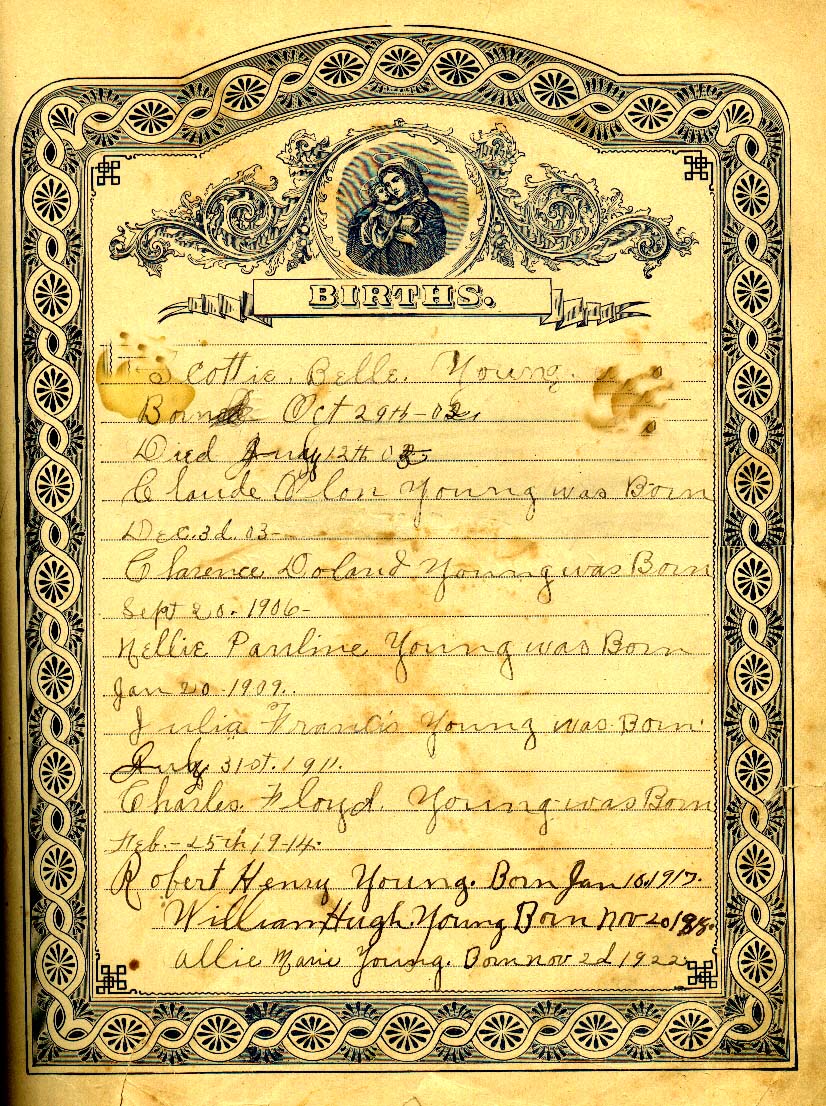 BIRTHS.
Scottie. Belle. Young.
Born Oct 29th - 02.
Died July 12th 03
Claude Olon Young was Born
Dec. 3d. 03-
Clarence Doland Young was Born
Sept 20. 1906-
Nellie Pauline Young was Born
Jan 20 1909.
Julia Francis Young was Born.
July 31st. 1911.
Charles. Floyd. Young was Born
Feb. - 25th 1914.
Robert Henry Young. Born Jan 10. 1917.
William Hugh. Young Born Nov 20
Allie Marie Young. Born nov 2d 1922